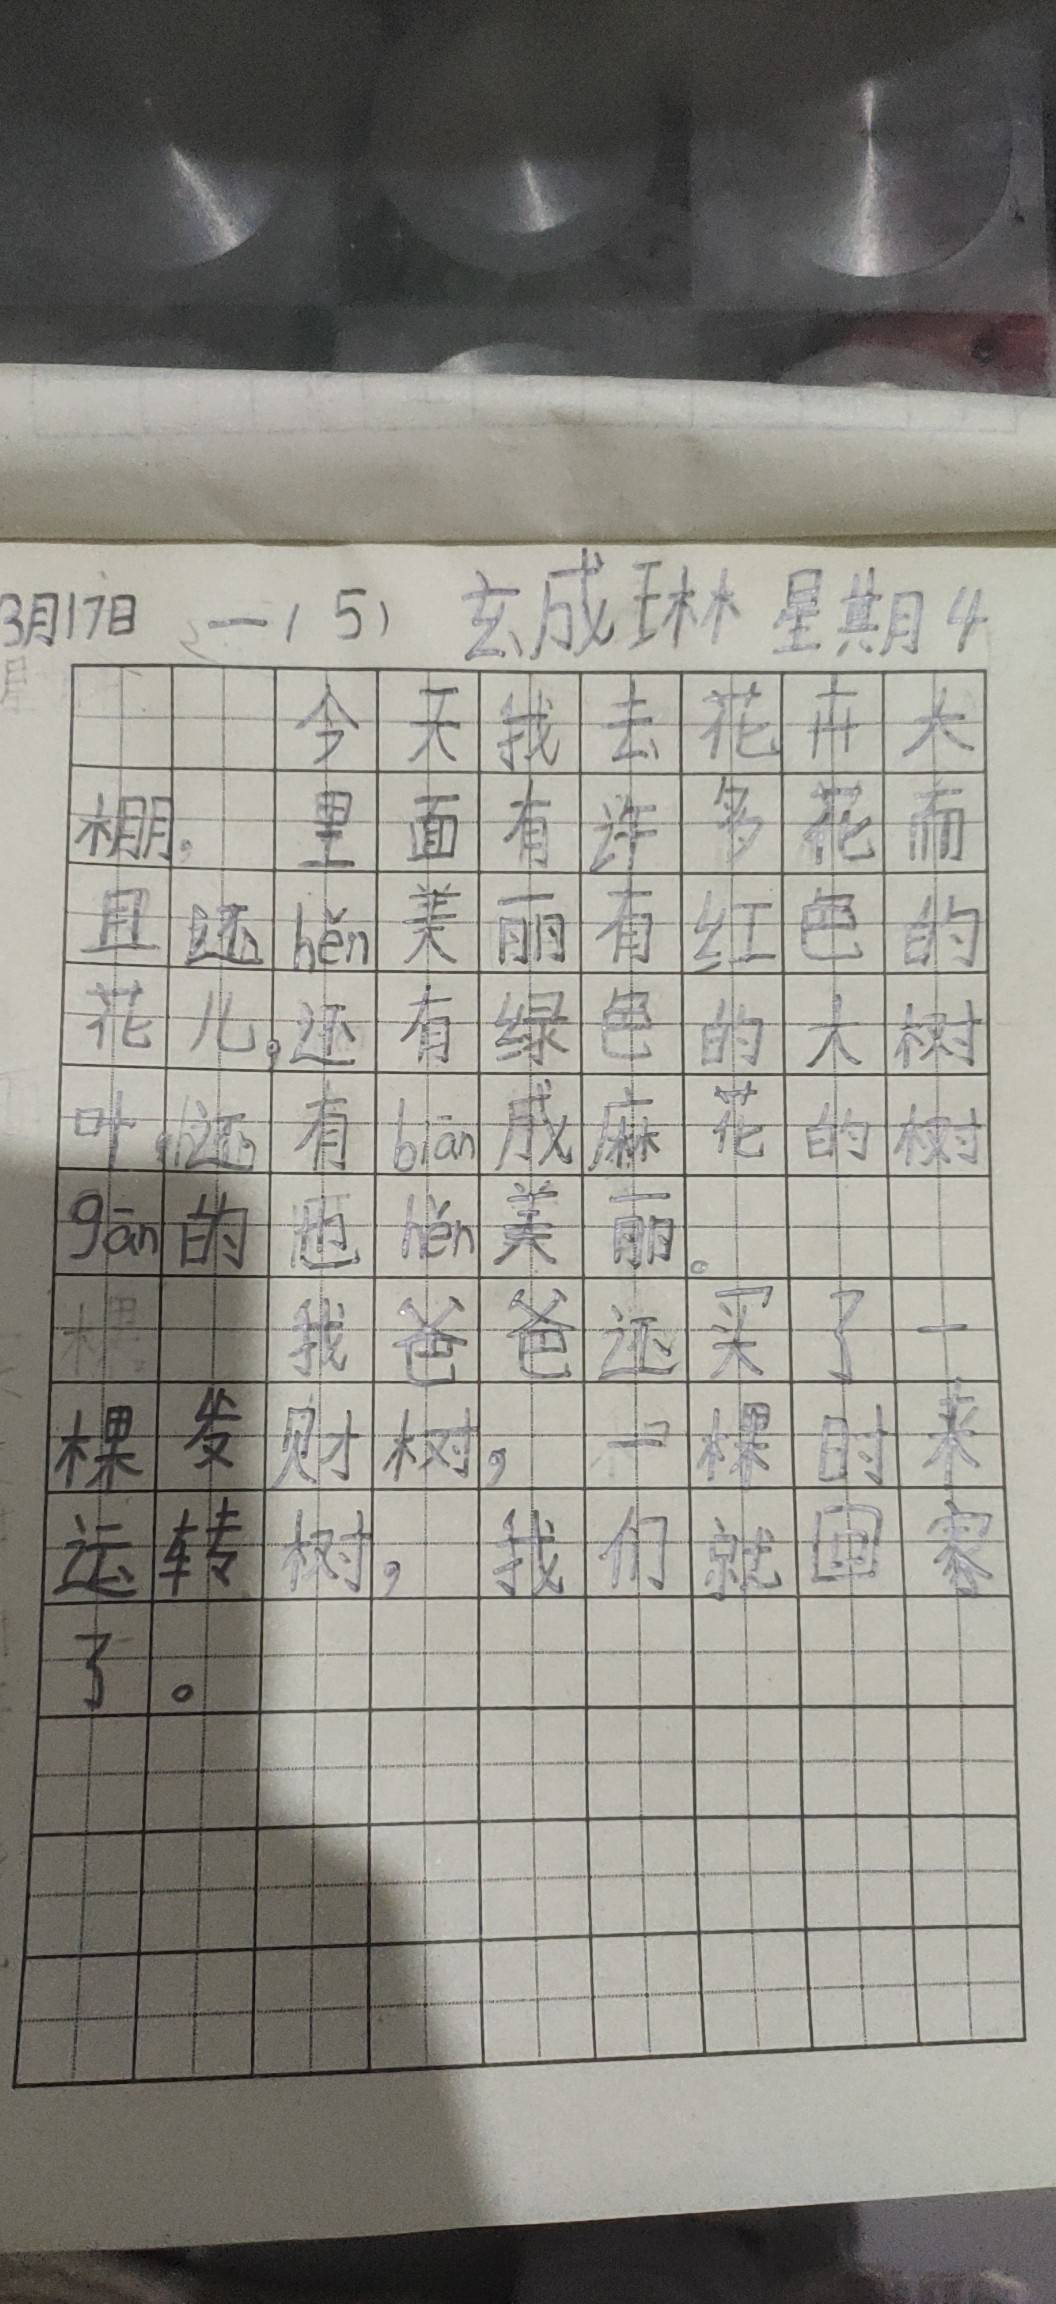 3月17日 一(5) 玄成琳 星期4
今天我去花卉大
棚，里面有许多花而
且还hěn美丽有红色的
花儿，还有绿色的大树
叶还有biān成麻花的树
gān的也hěn美丽。
我爸爸还买了一
棵发财树，一棵时来
运转树，我们就回家
了。